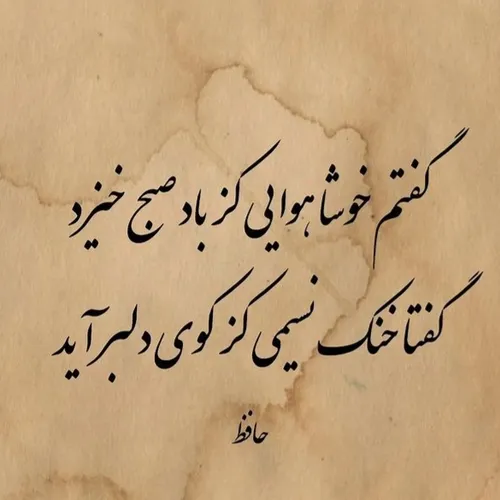 گفتم خوشا هوایی کز باد صبح خیزد
گفتا خنک نسیمی کز کوی دلبر آید
حافظ